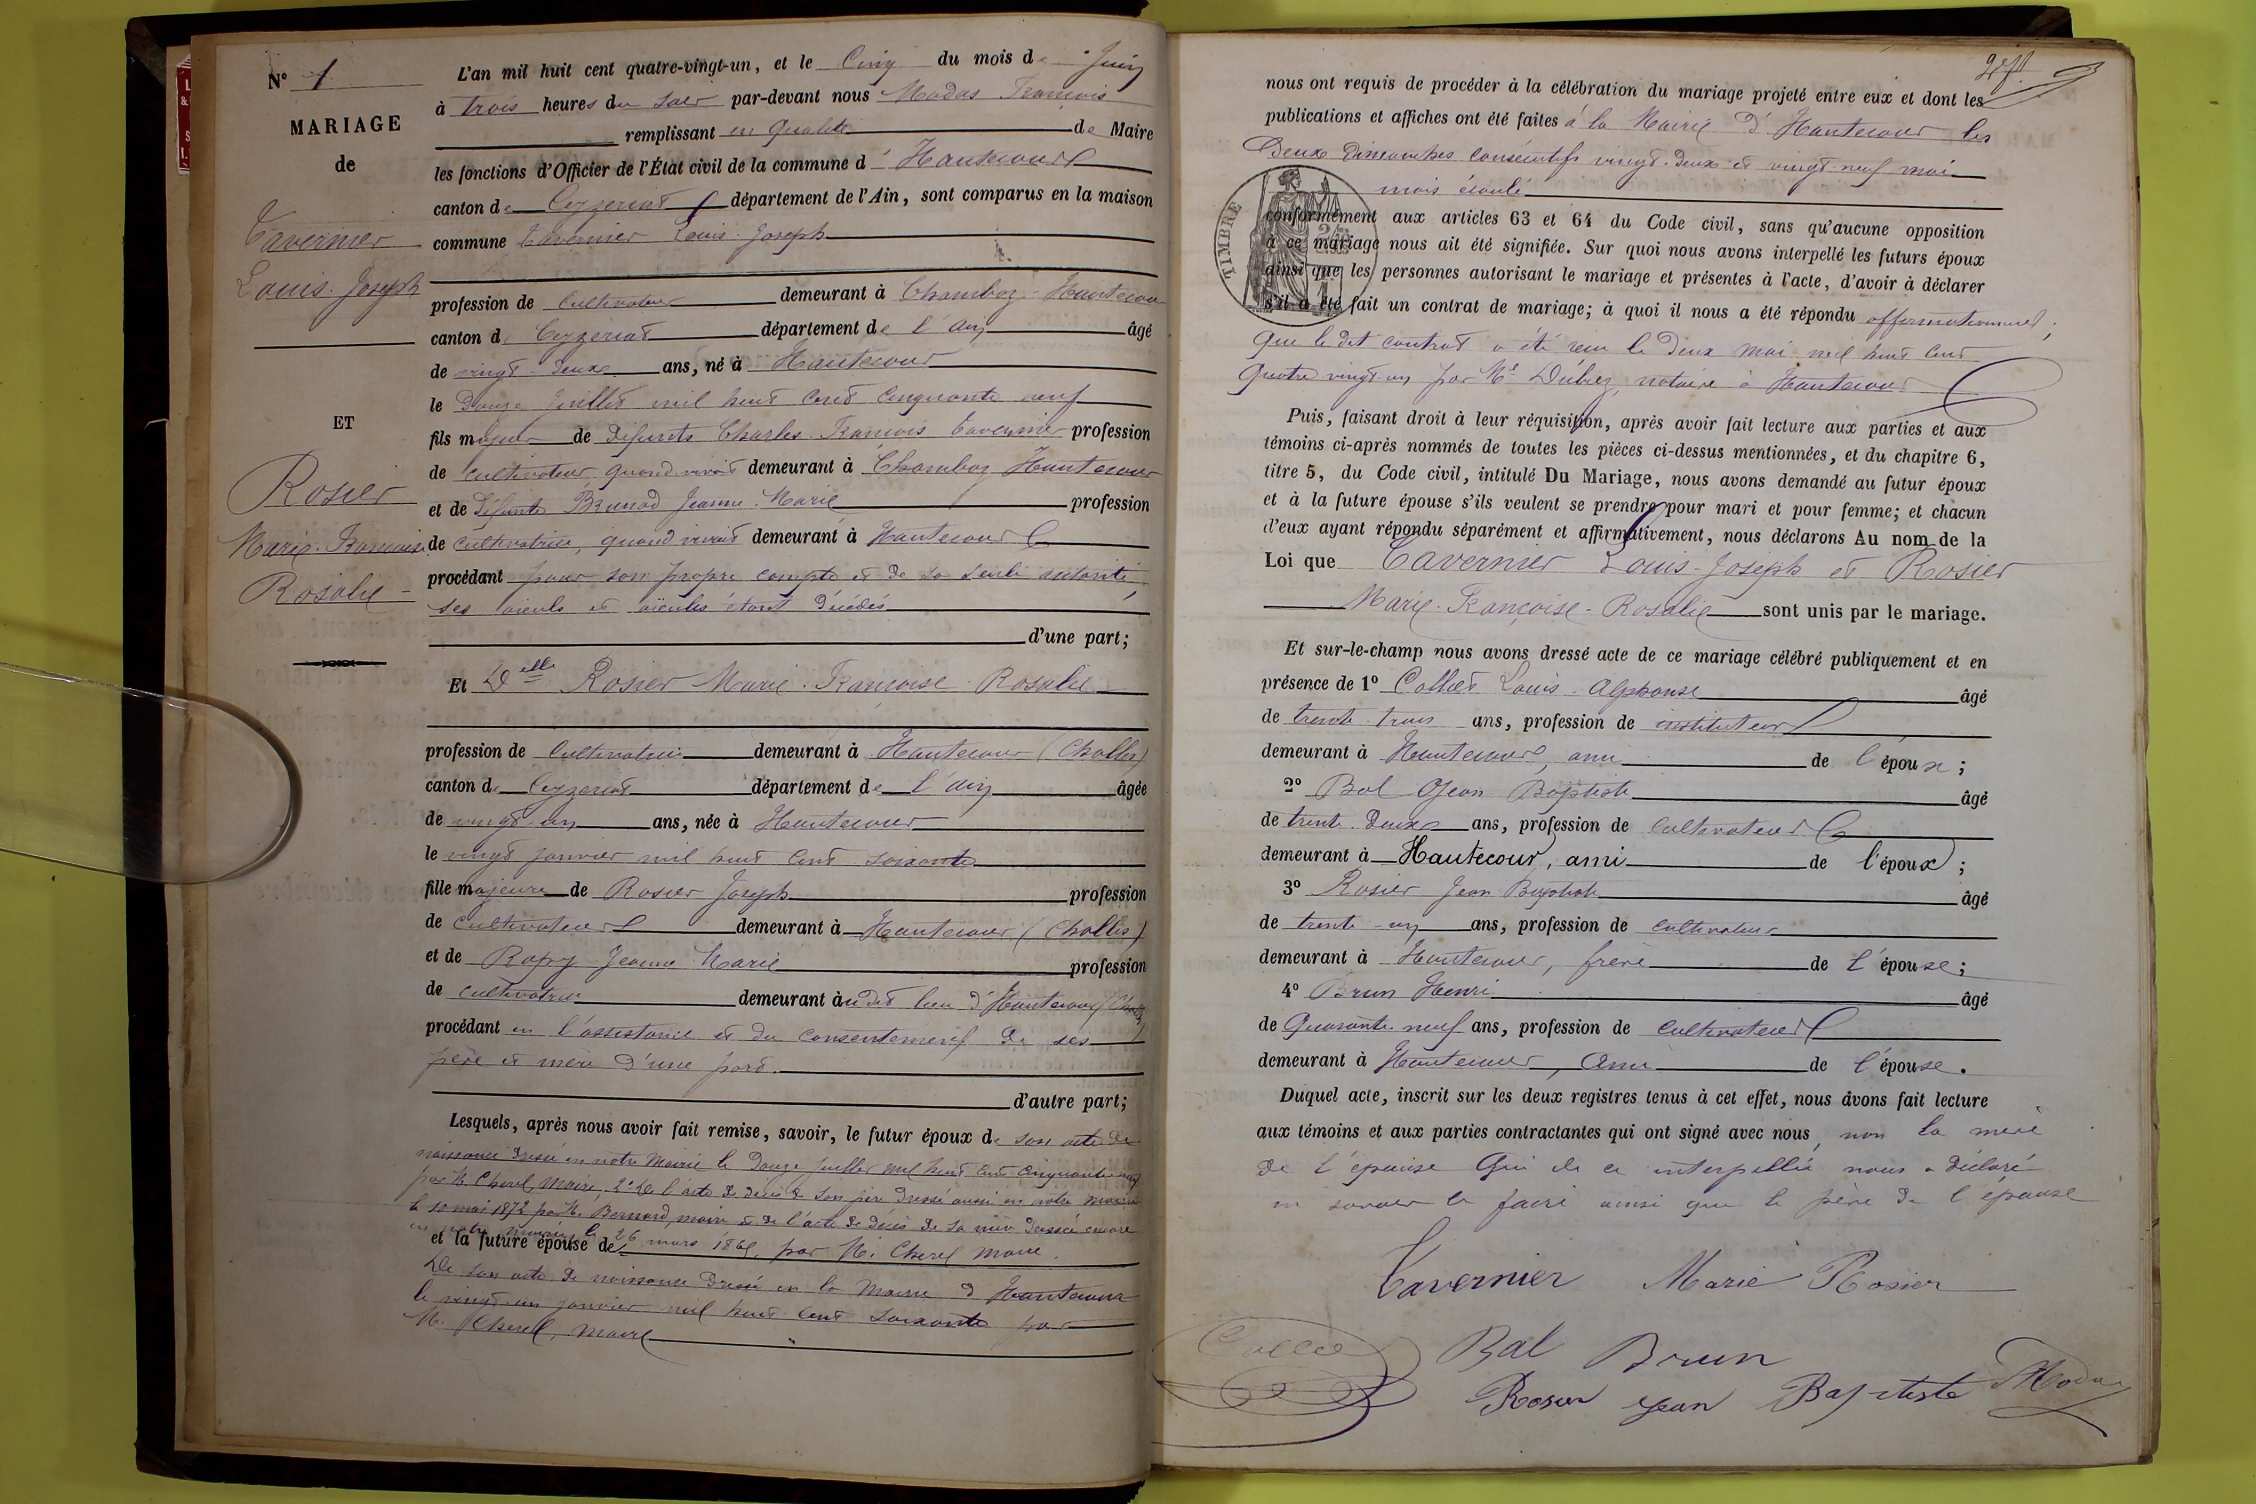 N° 1
MARIAGE
de
Tavernier
Louis Joseph
ET
Rosier
Marie Françoise
Rosalie
L'an mil huit cent quatre-vingt-un, et le Cinq du mois de Juin
à trois heures du soir par-devant nous Modas François
remplissant en qualité de Maire
les fonctions d'Officier de l'État civil de la commune d'Hautecour
canton de Ceyzeriat département de l'Ain, sont comparus en la maison
commune Tavernier Louis Joseph
profession de Cultivateur demeurant à Chamboz Hautecour
canton de Ceyzeriat département de l'Ain âgé
de vingt-deux ans, né à Hautecour
le Douze juillet mil huit cent cinquante neuf
fils majeur de défunts Charles François Tavernier profession
de cultivateur quand vivait demeurant à Chamboz Hautecour
et de défunte Brunod Jeanne Marie profession
de cultivatrice, quand vivait demeurant à Hautecour
procédant pour son propre compte et de sa seule autorité,
ses aïeuls et aïeules étant décédés
d'une part;
Et Delle Rosier Marie Françoise Rosalie
profession de Cultivatrice demeurant à Hautecour (Challes)
canton de Ceyzeriat département de l'Ain âgée
de vingt-un ans, née à Hautecour
le vingt janvier mil huit cent soixante
fille majeure de Rosier Joseph profession
de cultivateur demeurant à Hautecour (Challes)
et de Ropy Jeanne Marie profession
de cultivatrice demeurant à u dit lieu d'Hautecour
procédant en l'assistance et du consentement de ses
père et mère d'une part.
d'autre part;
Lesquels, après nous avoir fait remise, savoir, le futur époux de son acte de
naissance dressé en notre Mairie le Douze juillet mil huit cent cinquante neuf
par M. Cherel, Maire, 2° de l'acte de décès de son père dressé aussi en notre mairie
le 10 mai 1872 par M. Bernard, maire et de l'acte de décès de sa mère dressé encore
en notre mairie le 26 mars 186 par M. Cherel maire.
et la future épouse de
De son acte de naissance dressé en la Mairie d'Hautecour
le vingt-un janvier mil huit cent soixante par
M. Cherel, maire
nous ont requis de procéder à la célébration du mariage projeté entre eux et dont les
publications et affiches ont été faites à la Mairie d'Hautecour les
Deux Dimanches consécutifs vingt-deux et vingt-neuf mai
mois écoulé
TIMBRE
conformément aux articles 63 et 64 du Code civil, sans qu'aucune opposition
à ce mariage nous ait été signifiée. Sur quoi nous avons interpellé les futurs époux
ainsi que les personnes autorisant le mariage et présentes à l'acte, d'avoir à déclarer
s'il a été fait un contrat de mariage; à quoi il nous a été répondu affirmativement;
Que le dit contrat a été reçu le deux mai mil huit cent
quatre vingt-un par Me Débiez, notaire à Hautecour
Puis, faisant droit à leur réquisition, après avoir fait lecture aux parties et aux
témoins ci-après nommés de toutes les pièces ci-dessus mentionnées, et du chapitre 6,
titre 5, du Code civil, intitulé Du Mariage, nous avons demandé au futur époux
et à la future épouse s'ils veulent se prendre pour mari et pour femme; et chacun
d'eux ayant répondu séparément et affirmativement, nous déclarons Au nom de la
Loi que Tavernier Louis-Joseph et Rosier
Marie-Françoise-Rosalie sont unis par le mariage.
Et sur-le-champ nous avons dressé acte de ce mariage célébré publiquement et en
présence de 1° Collet Louis-Alphonse âgé
de trente trois ans, profession de instituteur
demeurant à Hautecour, ami de l'époux;
2° Bal Jean Baptiste âgé
de trente-deux ans, profession de cultivateur
demeurant à Hautecour, ami de l'époux;
3° Rosier Jean Baptiste âgé
de trente-un ans, profession de cultivateur
demeurant à Hautecour, frère de l'épouse;
4° Brun Henri âgé
de Quarante-neuf ans, profession de cultivateur
demeurant à Hautecour, Ami de l'épouse.
Duquel acte, inscrit sur les deux registres tenus à cet effet, nous avons fait lecture
aux témoins et aux parties contractantes qui ont signé avec nous, non la mère
de l'épouse qui de ce interpellée nous a déclaré
ne savoir le faire ainsi que le père de l'épouse
Tavernier Marie Rosier
Collet Bal Brun
Rosier Jean Baptiste Modas